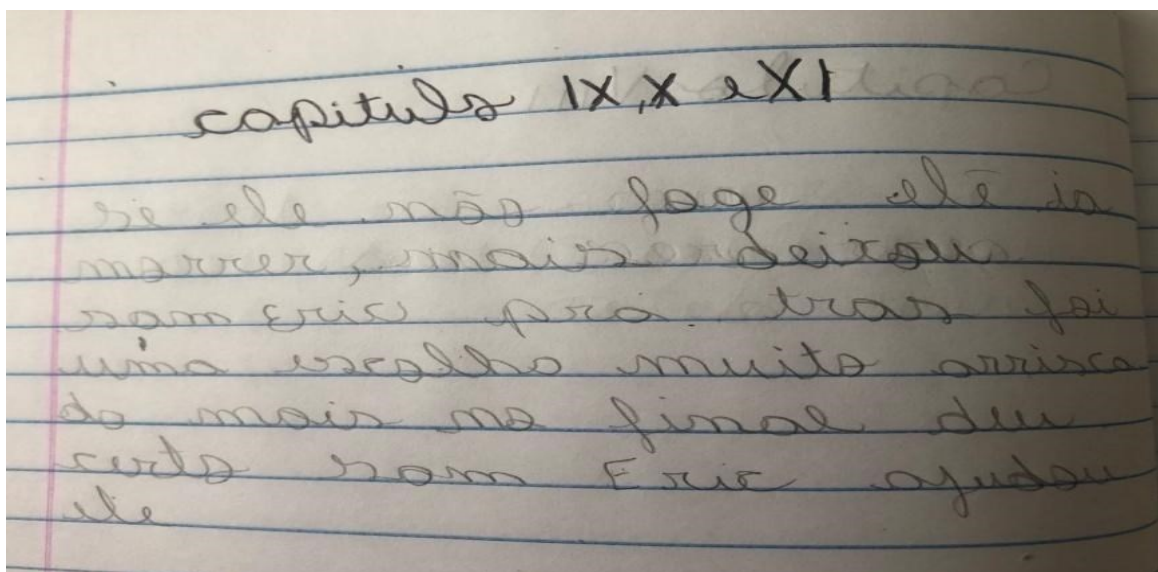 capitulo IX, X e XI
si ele não foge ele ia
morrer, mais deixou
sam Eric pra tras foi
uma escolha muito arrisca
da mais no final deu
certo sam Eric ajudou
ele